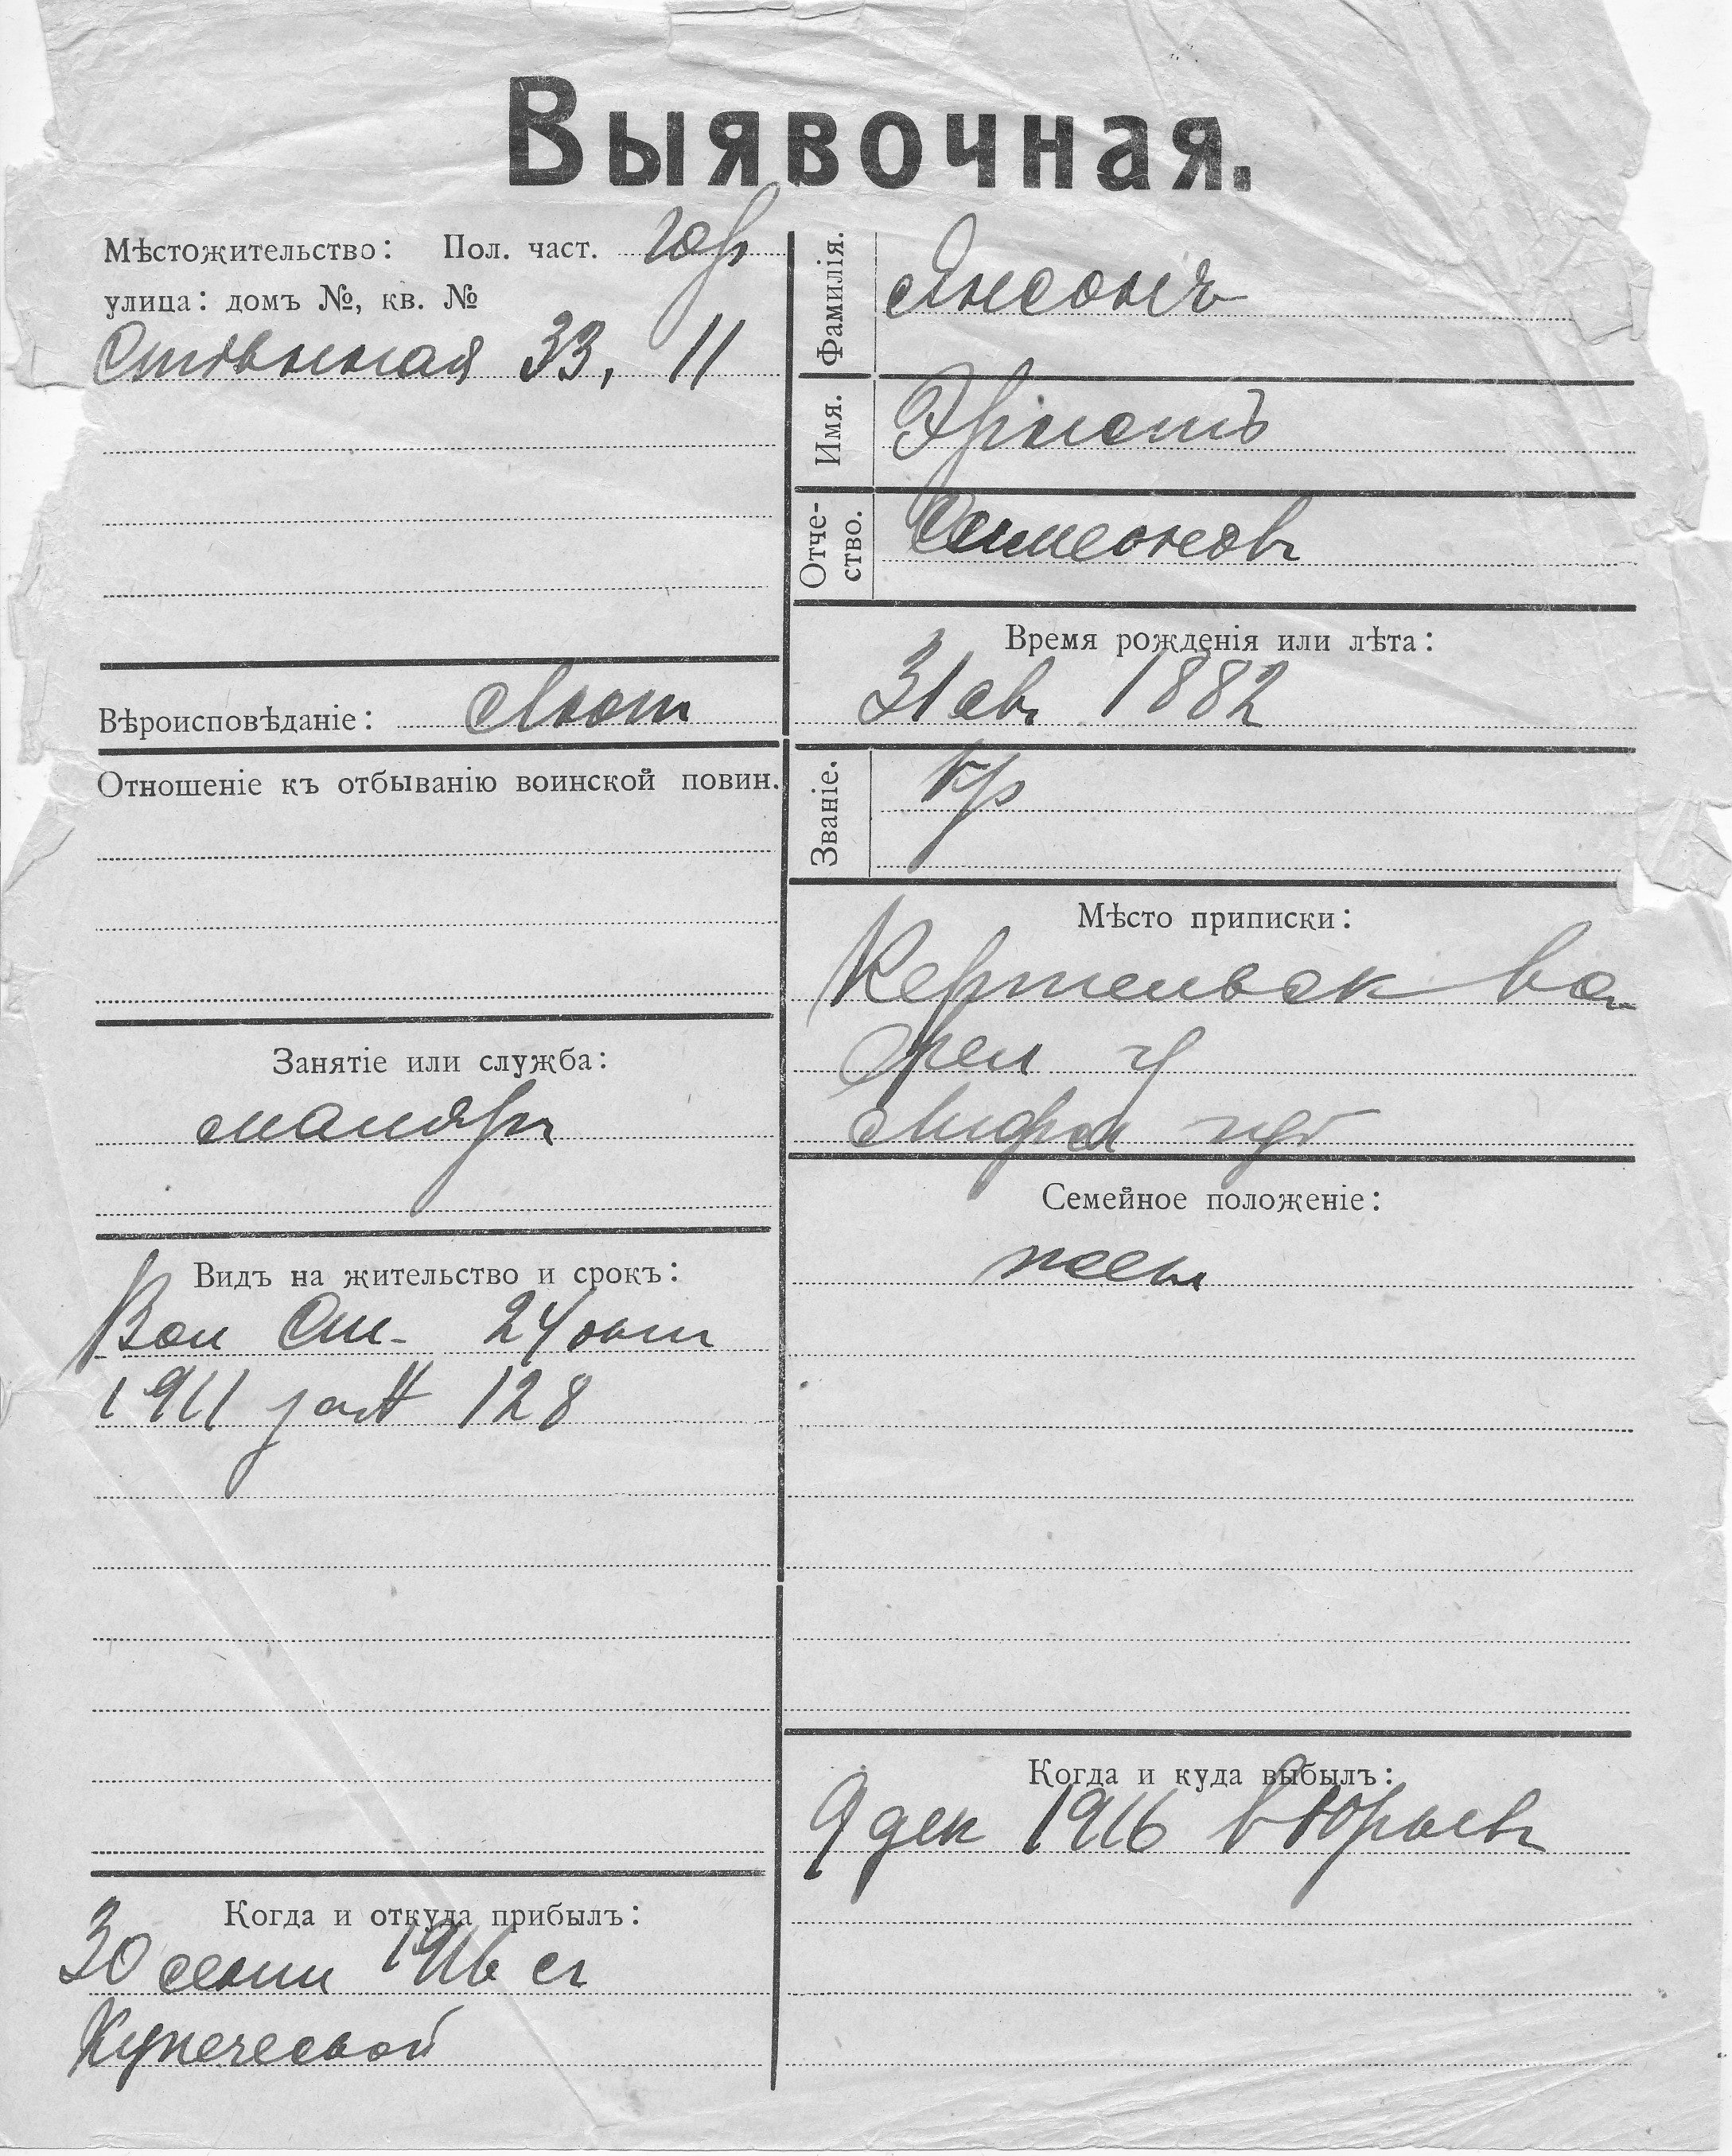 Выявочная.
Мѣстожительство: Пол. част. Юр
улица: домъ №, кв. №
33, 11
Вѣроисповѣданіе: Лют
Отношеніе къ отбыванію воинской повин.
Занятіе или служба:
маляръ
Видъ на жительство и срокъ:
Вол 24 окт
1911 128
Когда и откуда прибылъ:
30 сент 1916 съ
Купеческой
Фамилія. Янсонъ
Имя. Эрнстъ
Отче-
ство. Симеоновъ
Время рожденія или лѣта:
31 авг 1882
Званіе. кр
Мѣсто приписки:
во
у
губ
Семейное положеніе:
Когда и куда выбылъ:
9 дек 1916 въ Юрьевъ